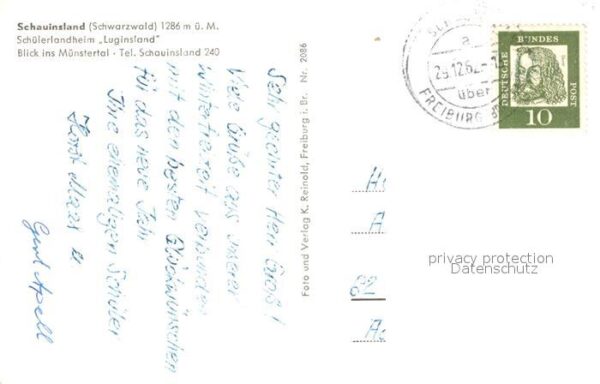 Schauinsland (Schwarzwald) 1286 m ü. M.
Schülerlandheim „Luginsland"
Blick ins Münstertal - Tel. Schauinsland 240
Sehr geehrter Herr
Viele Grüße aus unserer
Winterfreizeit verbunden
mit den besten Glückwünschen
für das neue Jahr
Ihre ehemaligen Schüler
Horst Maas u
Gerd Apell
Foto und Verlag K. Reinold, Freiburg i. Br. Nr. 2086
a
29.12.62
über
FREIBURG
DEUTSCHE BUNDES POST
10
privacy protection
Datenschutz